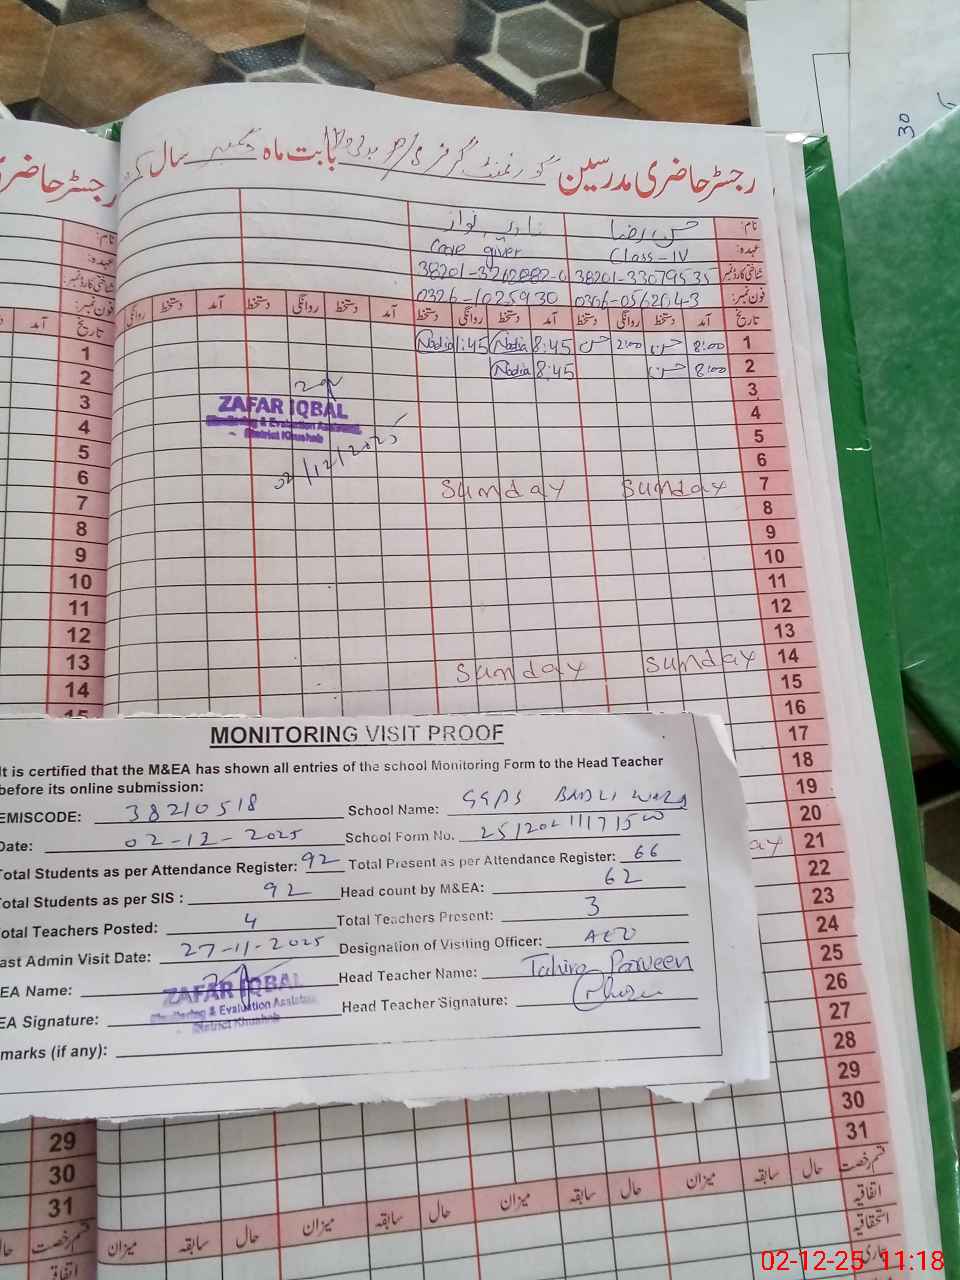 رجسٹر حاضری مدرسین گورنمنٹ گرلز بابت ماہ دسمبر سال
رجسٹر حاضری
نام: حسن رضا نادیہ نواز
عہدہ: Class-IV Care giver
شناختی کارڈ نمبر: 38201-3307953 5 38201-3262882-0
فون نمبر: 0306-0562043 0326-1025930
تاریخ آمد دستخط روانگی دستخط آمد دستخط روانگی دستخط آمد دستخط روانگی دستخط
1 8:00 حسن 2:00 حسن 8:45 Nadia 1:45 Nadia
2 8:00 حسن 8:45 Nadia
3
4
5
6
7 Sunday Sunday
8
9
10
11
12
13
14 Sunday Sunday
15
16
17
18
19
20
21
22
23
24
25
26
27
28
29
30
31
ZAFAR IQBAL
Monitoring & Evaluation Assistant
District Khushab
02/12/2025
MONITORING VISIT PROOF
It is certified that the M&EA has shown all entries of the school Monitoring Form to the Head Teacher
before its online submission:
EMISCODE: 38210518 School Name: GGPS
Date: 02-12-2025 School Form No.
Total Students as per Attendance Register: 92 Total Present as per Attendance Register: 66
Total Students as per SIS : 92 Head count by M&EA: 62
Total Teachers Posted: 4 Total Teachers Present: 3
Last Admin Visit Date: 27-11-2025 Designation of Visiting Officer: AEO
EA Name: ZAFAR IQBAL Head Teacher Name: Tahira Parveen
EA Signature: Monitoring & Evaluation Assistant District Khushab Head Teacher Signature:
marks (if any):
قسم رخصت حال سابقہ میزان حال سابقہ میزان حال سابقہ میزان
اتفاقیہ
استحقاقیہ
تاریخ آمد
1
2
3
4
5
6
7
8
9
10
11
12
13
14
15
29
30
31
قسم رخصت
02-12-25 11:18